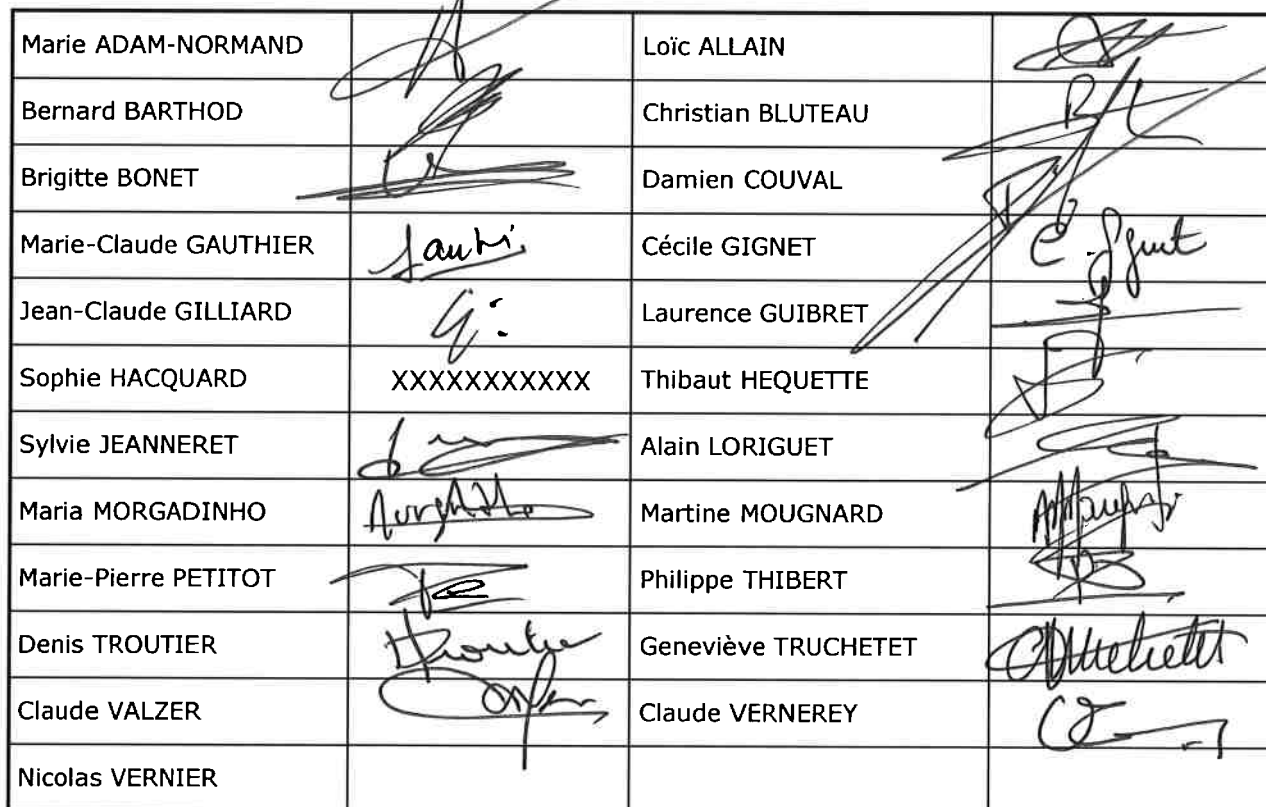 Marie ADAM-NORMAND Loïc ALLAIN
Bernard BARTHOD Christian BLUTEAU
Brigitte BONET Damien COUVAL
Marie-Claude GAUTHIER Cécile GIGNET
Jean-Claude GILLIARD Laurence GUIBRET
Sophie HACQUARD XXXXXXXXXXX Thibaut HEQUETTE
Sylvie JEANNERET Alain LORIGUET
Maria MORGADINHO Martine MOUGNARD
Marie-Pierre PETITOT Philippe THIBERT
Denis TROUTIER Geneviève TRUCHETET
Claude VALZER Claude VERNEREY
Nicolas VERNIER